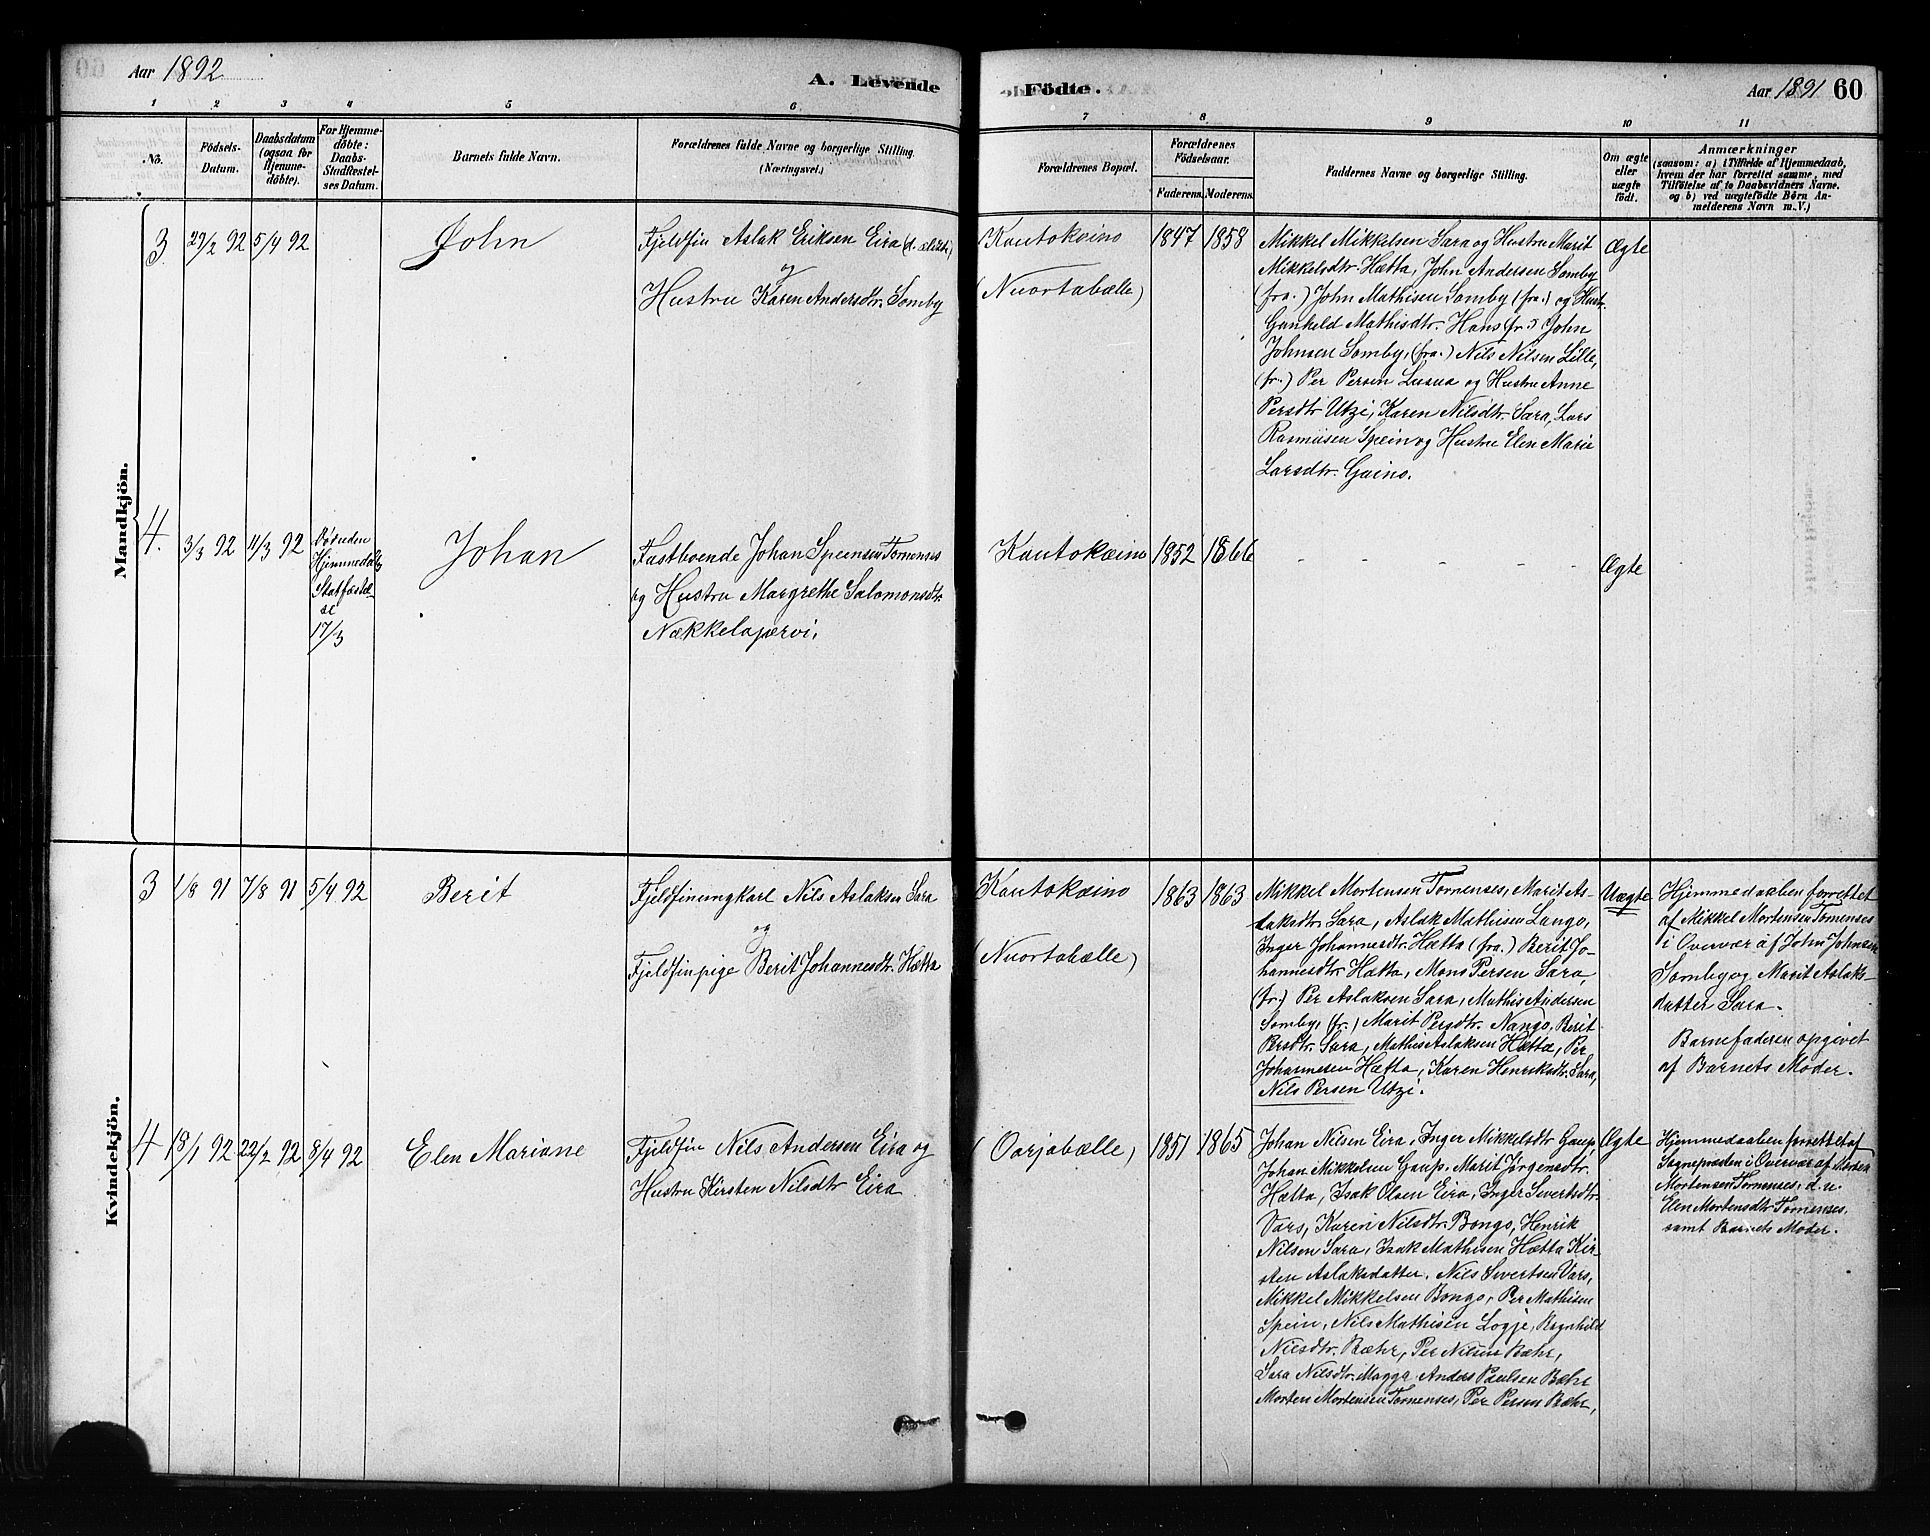 Aar 1892
A. Levende
Födte.
Aar 1891 60
1 2 3 4 5 6 7 8 9 10 11
No.
Födsels-
Datum.
Daabsdatum
(ogsaa for
Hjemme-
döbte).
For Hjemme-
döbte:
Daabs-
Stadfæstel-
ses Datum.
Barnets fulde Navn.
Forældrenes fulde Navne og borgerlige Stilling.
(Næringsvei.)
Forældrenes Bopæl.
Forældrenes
Födselsaar.
Faderens. Moderens.
Faddernes Navne og borgerlige Stilling.
Om ægte
eller
uægte
födt.
Anmærkninger
(saasom: a) i Tilfælde af Hjemmedaab,
hvem der har forrettet samme, med
Tilföielse af to Daabsvidners Navne.
og b) ved uægtefödte Börn An-
melderens Navn m. V.)
Mandkjön.
3. 29/2 92 5/4 92
John
Fjeldfin Aslak Eriksen Eira
og
Hustru Karen Andersdtr. Somby
Kautokeino
(Nuortabælle)
1847 1858
Mikkel Mikkelsen Sara og Hustru Marit
Mikkelsdtr. Hætta, John Andersen Somby
(fra.) John Mathisen Somby (fra.) og Hustr.
Gunheld Mathisdtr. Hans (fr.) John
Johnsen Somby, (fra.) Nils Nilsen Lille,
(fr.) Per Persen Lusua og Hustru Anne
Persdtr Utzi, Karen Nilsdtr. Sara, Lars
Rasmusen Spein og Hustru Elen Marie
Larsdtr. Gaino.
Ægte
4. 3/3 92 11/3 92
Stadfæstel-
se
17/3
Johan
Fastboende Johan Speinsen Tornenses
og Hustru Margrethe Salomonsdtr.
Nækkelajærvi.
Kautokeino
1852 1866
- - - - -
Ægte
Kvindekjön.
3 1/8 91 7/8 91 5/4 92
Berit
Fjeldfinungkarl Nils Aslaksen Sara
og
Fjeldfinpige Berit Johannesdtr. Hætta
Kautokeino
(Nuortabælle)
1863 1863
Mikkel Mortensen Tornenses, Marit As-
laksdtr. Sara, Aslak Mathisen Lango,
Inger Johannesdtr. Hætta (fra.) Berit Jo-
hannesdtr. Hætta, Mons Persen Sara,
(fr.) Per Aslaksen Sara, Mathis Andersen
Somby, (fr.) Marit Persdtr. Nango, Berit
Persdtr. Sara, Mathis Aslaksen Hætta, Per
Johannesen Hætta, Karen Henriksdtr. Sara,
Nils Persen Utzi.
Uægte
Hjemmedaaben forrettet
af Mikkel Mortensen Tornenses
i Overvær af John Johnsen
Somby og Marit Aslaks-
datter Sara.
Barnefaderen opgivet
af Barnets Moder.
4 18/1 92 22/2 92 8/4 92
Elen Mariane
Fjeldfin Nils Andersen Eira og
Hustru Kirsten Nilsdtr Eira
(Oarjabælle)
1851 1865
Johan Nilsen Eira, Inger Mikkelsdtr Gaup
Johan Mikkelsen Gaup, Marit Jørgensdtr.
Hætta, Isak Olsen Eira, Inger Sivertsdtr.
Vars, Karen Nilsdtr. Bongo, Henrik
Nilsen Sara, Isak Mathisen Hætta Kir-
sten Aslaksdatter, Nils Sivertsen Vars,
Mikkel Mikkelsen Bongo, Per Mathisen
Spein, Nils Mathisen Logje, Ragnhild
Nilsdtr. Bæhr, Per Nilsen Bæhr,
Sara Nilsdtr. Magga Anders Paulsen Bæhr
Morten Mortensen Tornenses, Per Persen Bæhr,
Ægte
Hjemmedaaben forrettet af
Sognepræsten i Overvær af Morten
Mortensen Tornenses, d. u.
Elen Mortensdtr Tornenses,
samt Barnets Moder.